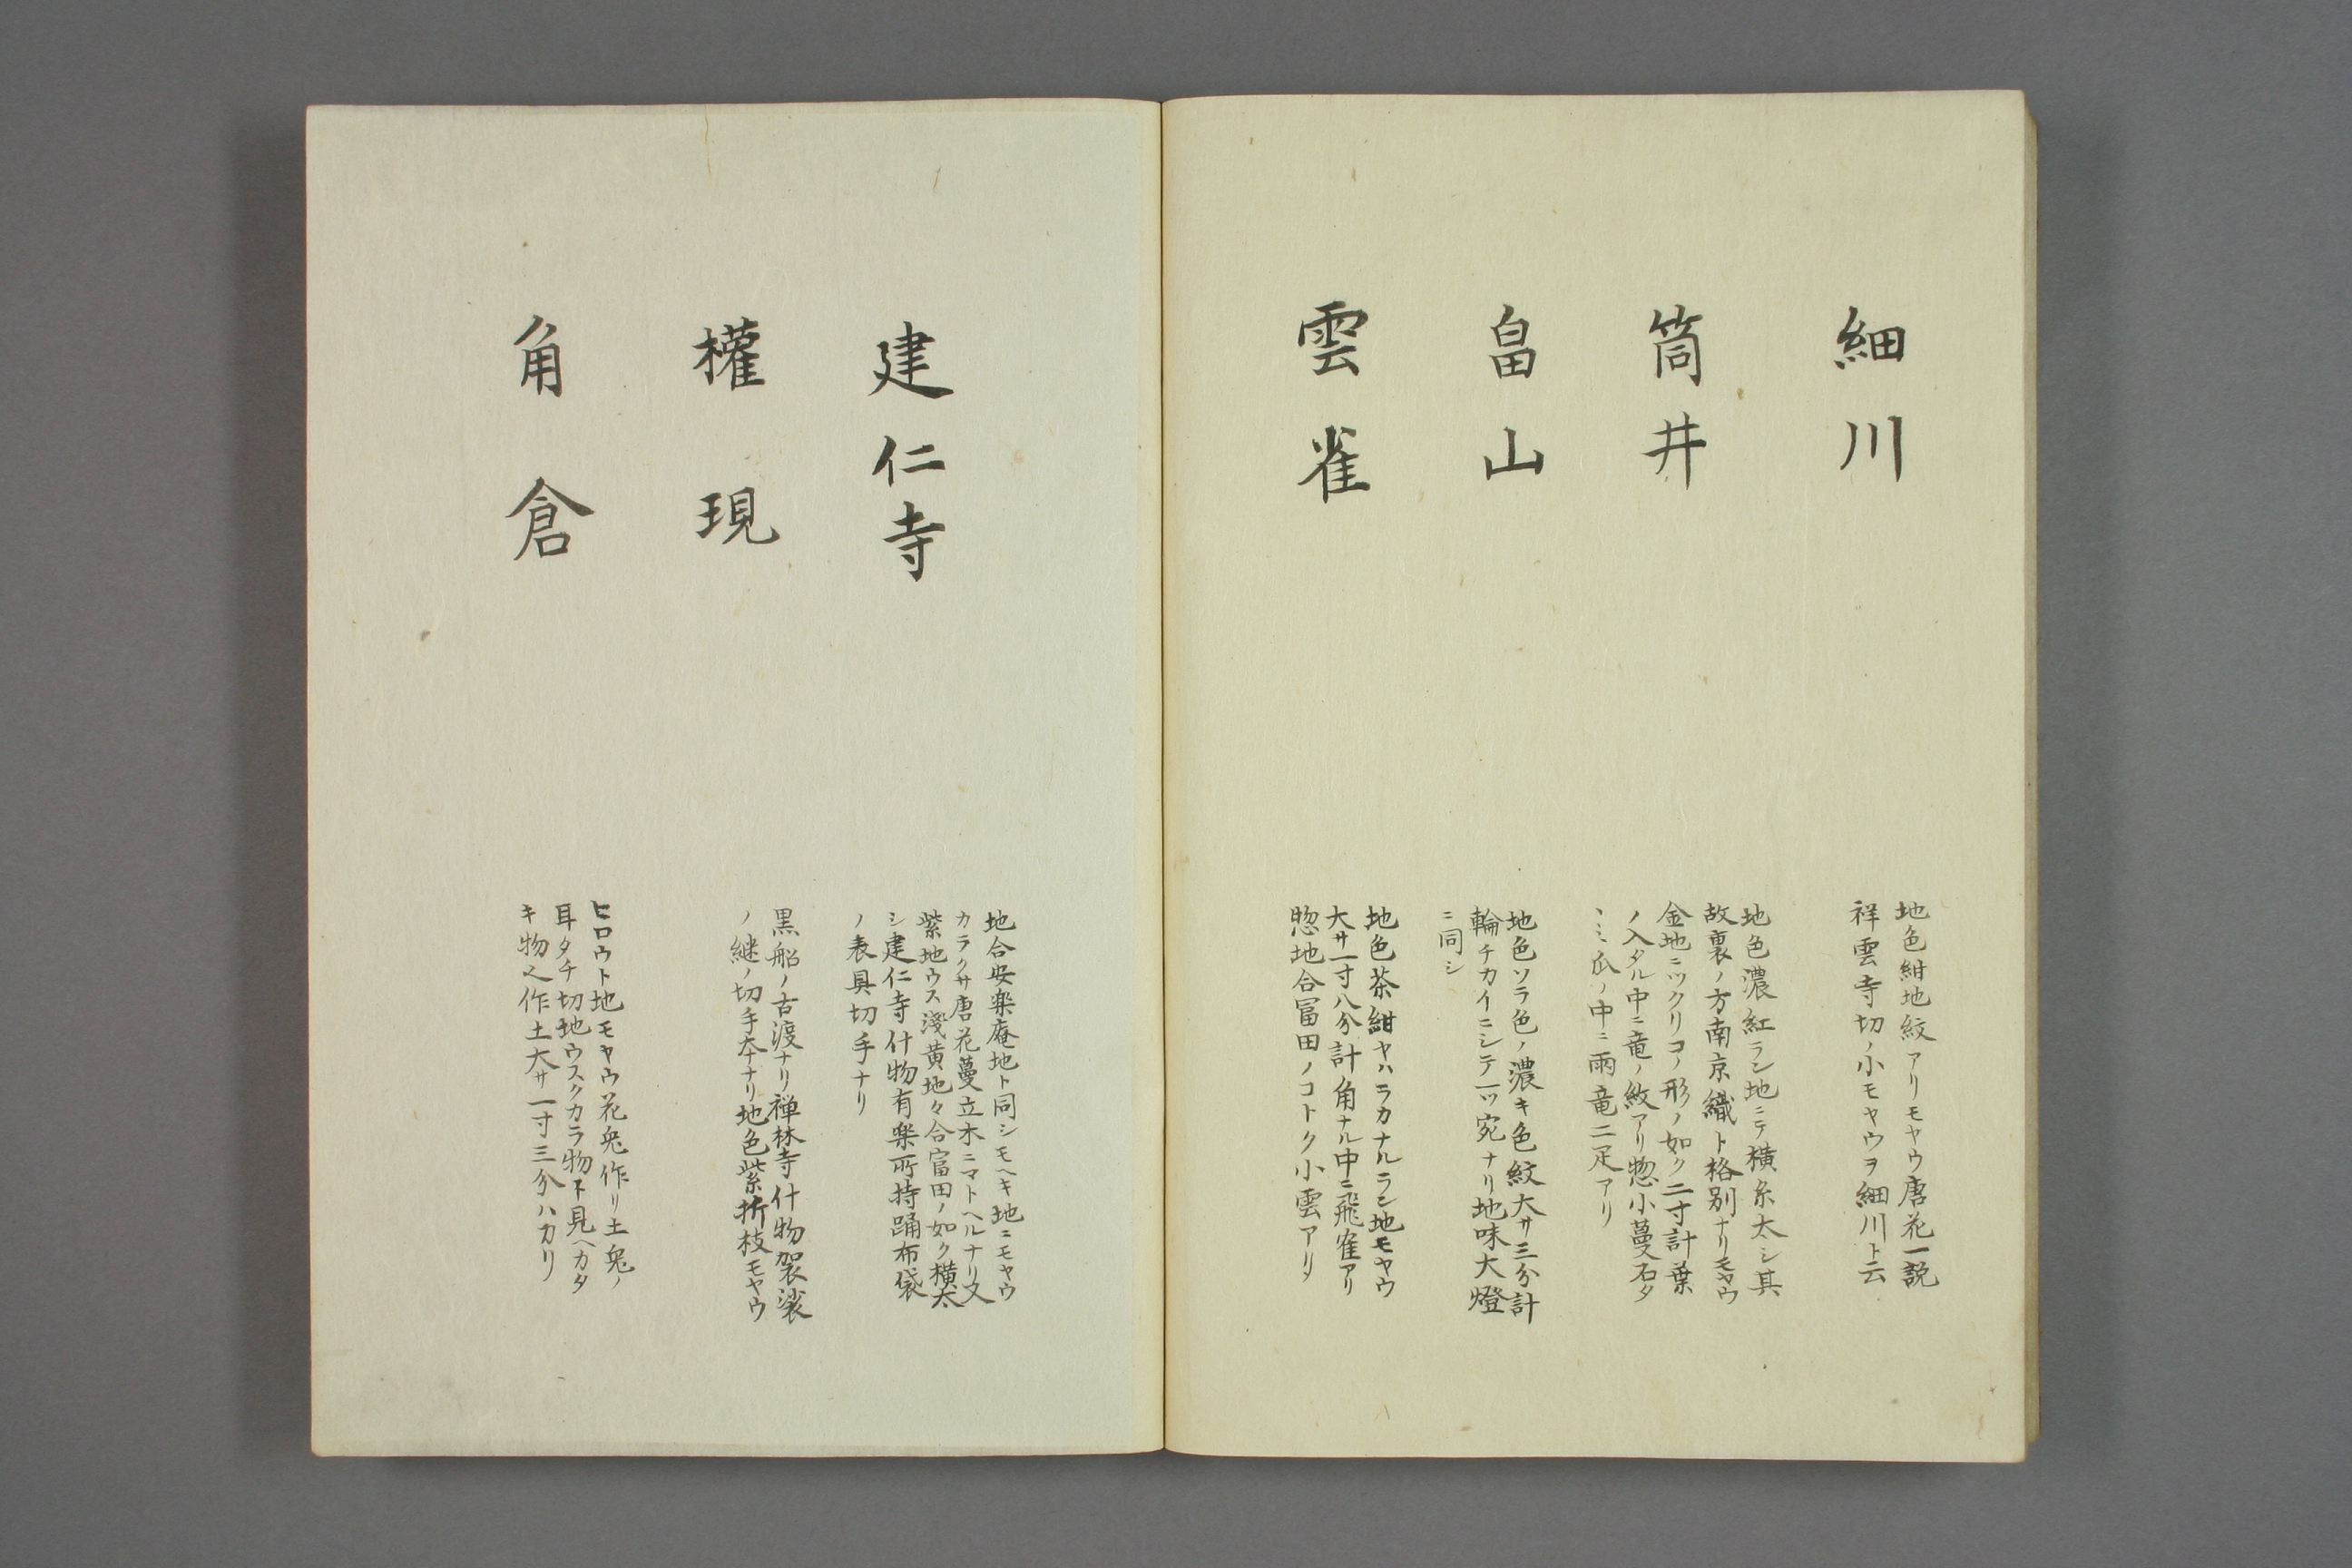 細川
地色紺地紋アリモヤウ唐花一説
祥雲寺切ノ小モヤウヲ細川ト云
筒井
地色濃紅ラン地ニテ横糸太シ其
故裏ノ方南京織ト格別ナリモヤウ
金地ニツクリコノ形ノ如ク二寸計葉
ノ入タル中ニ竜ノ紋アリ惣小蔓石タ
ヽミ爪ノ中ニ雨竜二疋アリ
畠山
地色ソラ色ノ濃キ色紋大サ三分計
輪チカイニシテ一ツ宛ナリ地味大燈
ニ同シ
雲雀
地色茶紺ヤハラカナルラン地モヤウ
大サ一寸八分計角ナル中ニ飛雀アリ
惣地合冨田ノコトク小雲アリ
建仁寺
地合安楽庵地ト同シモヘキ地ニモヤウ
カラクサ唐花蔓立木ニマトヘルナリ又
紫地ウス淺黄地々合富田ノ如ク横太
シ建仁寺什物有楽所持踊布袋
ノ表具切手ナリ
權現
黒船ノ古渡ナリ禅林寺什物袈裟
ノ継ノ切手本ナリ地色紫折枝モヤウ
角倉
ヒロウト地モヤウ花兎作リ土兎ノ
耳タチ切地ウスクカラ物不見ヘカタ
キ物又作土大サ一寸三分ハカリ